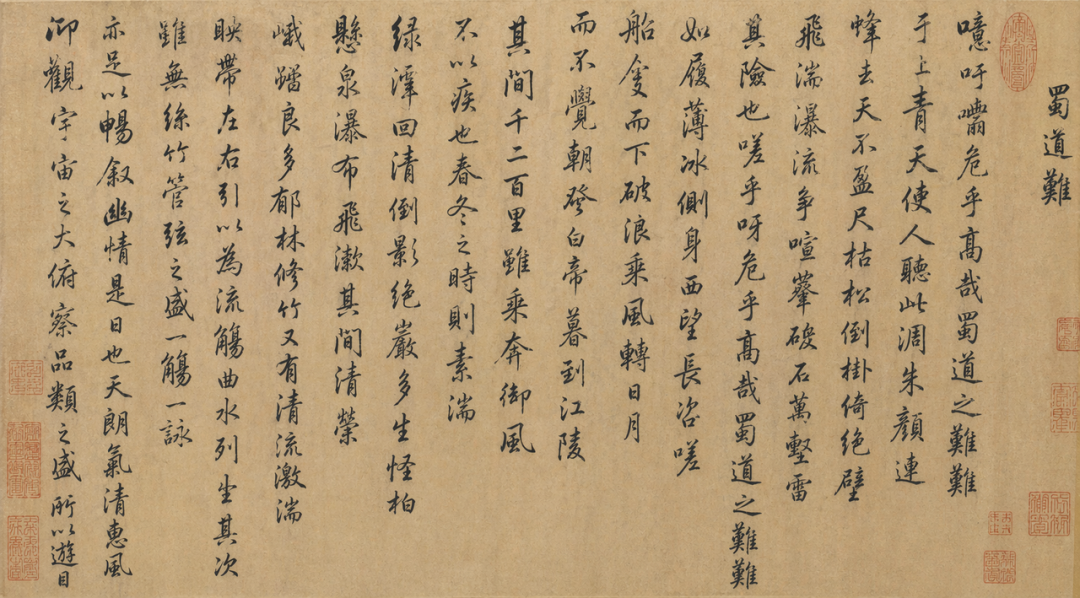 蜀道難
噫吁嚱危乎高哉蜀道之難難
于上青天使人聽此凋朱顏連
峰去天不盈尺枯松倒掛倚絕壁
飛湍瀑流爭喧砯石萬壑雷
其險也嗟乎呀危乎高哉蜀道之難難
如履薄冰側身西望長咨嗟
船而下破浪乘風轉日月
而不覺朝發白帝暮到江陵
其間千二百里雖乘奔御風
不以疾也春冬之時則素湍
緑潭回清倒影絶巖多生怪柏
懸泉瀑布飛漱其間清榮
峻茂良多郁林修竹又有清流激湍
映帶左右引以為流觴曲水列坐其次
雖無絲竹管弦之盛一觴一詠
亦足以暢叙幽情是日也天朗氣清惠風
仰觀宇宙之大俯察品類之盛所以遊目